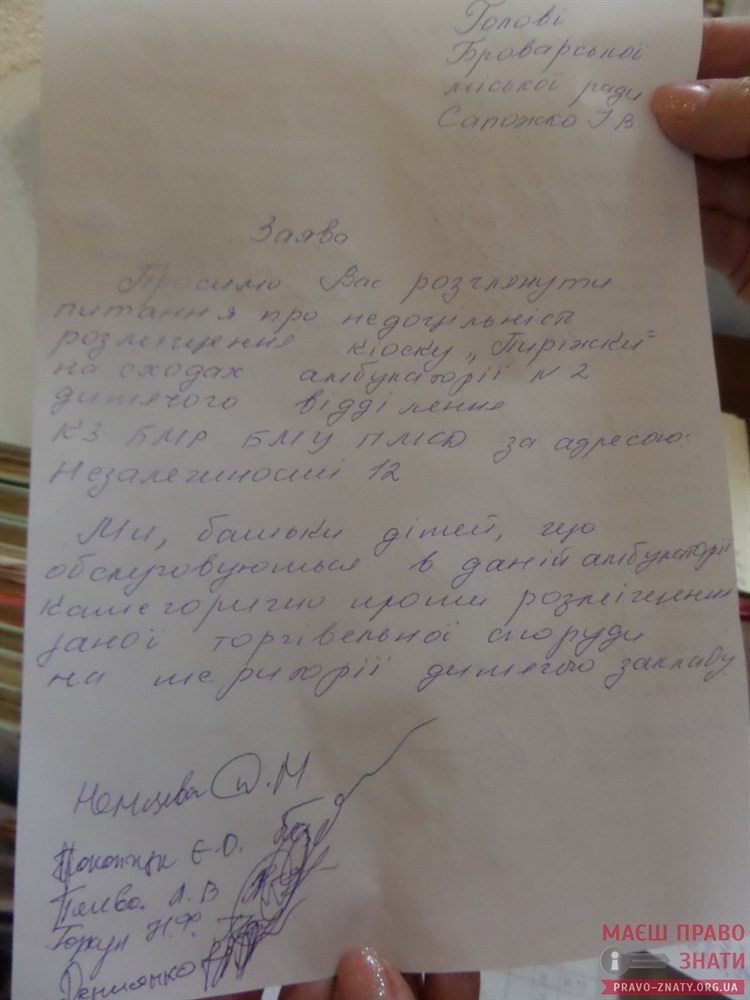 Голові
Броварської
міської ради
Сапожко І В.
Заява
Просимо Вас розглянути
питання про недоцільність
розміщення кіоску „Пиріжки"
на сходах амбулаторії N 2
дитячого відділення
КЗ БМР БМЦ ПМСД за адресою:
Незалежності 12
Ми, батьки дітей, що
обслуговуються в даній амбулаторії
категорично проти розміщення
даної торгівельної споруди
на території дитячого закладу.
Немцева О. М.
Є-О.
Л. В
Н.Ф.
МАЄШ ПРАВО
ЗНАТИ
PRAVO-ZNATY.ORG.UA